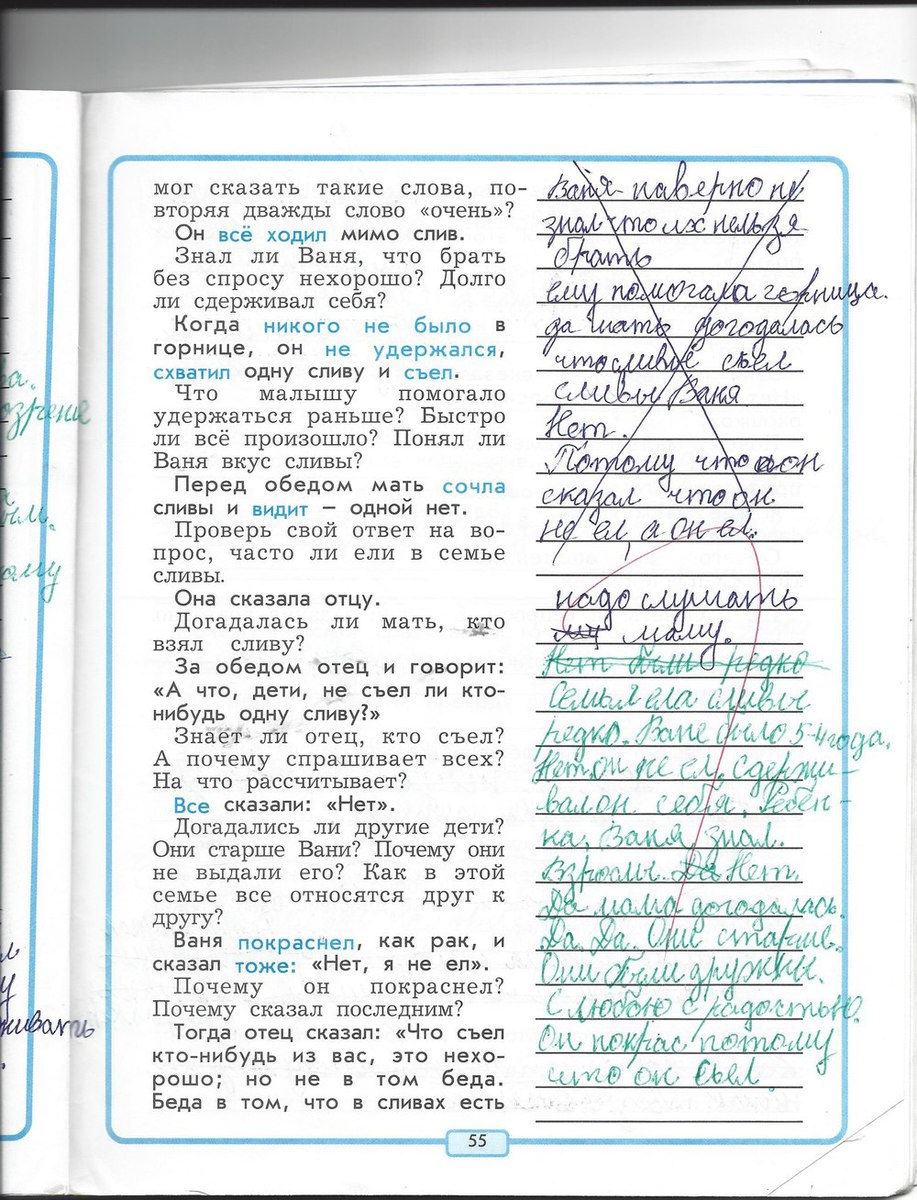 мог сказать такие слова, по-
вторяя дважды слово «очень»?
Он всё ходил мимо слив.
Знал ли Ваня, что брать
без спросу нехорошо? Долго
ли сдерживал себя?
Когда никого не было в
горнице, он не удержался,
схватил одну сливу и съел.
Что малышу помогало
удержаться раньше? Быстро
ли всё произошло? Понял ли
Ваня вкус сливы?
Перед обедом мать сочла
сливы и видит – одной нет.
Проверь свой ответ на во-
прос, часто ли ели в семье
сливы.
Она сказала отцу.
Догадалась ли мать, кто
взял сливу?
За обедом отец и говорит:
«А что, дети, не съел ли кто-
нибудь одну сливу?»
Знает ли отец, кто съел?
А почему спрашивает всех?
На что рассчитывает?
Все сказали: «Нет».
Догадались ли другие дети?
Они старше Вани? Почему они
не выдали его? Как в этой
семье все относятся друг к
другу?
Ваня покраснел, как рак, и
сказал тоже: «Нет, я не ел».
Почему он покраснел?
Почему сказал последним?
Тогда отец сказал: «Что съел
кто-нибудь из вас, это нехо-
рошо; но не в том беда.
Беда в том, что в сливах есть
Ваня наверно не
знал что их нельзя
брать
ему помогала горница.
да мать догодалась
что сливы съел
сливы Ваня
Нет.
Потому что он
сказал что он
не ел, а он ел.
надо слушать
маму.
Нет были редко
Семья ела сливы
редко. Ване было 5-4 года.
Нет он не ел, сдержи-
вал он себя. Ребён-
ка, Ваня знал.
Взрослы. Да Нет.
Да мама догодалась.
Да. Да. Они старше.
Они были дружны.
С любовю с радостью.
Он покрас потому
что он съел.
55
ивать